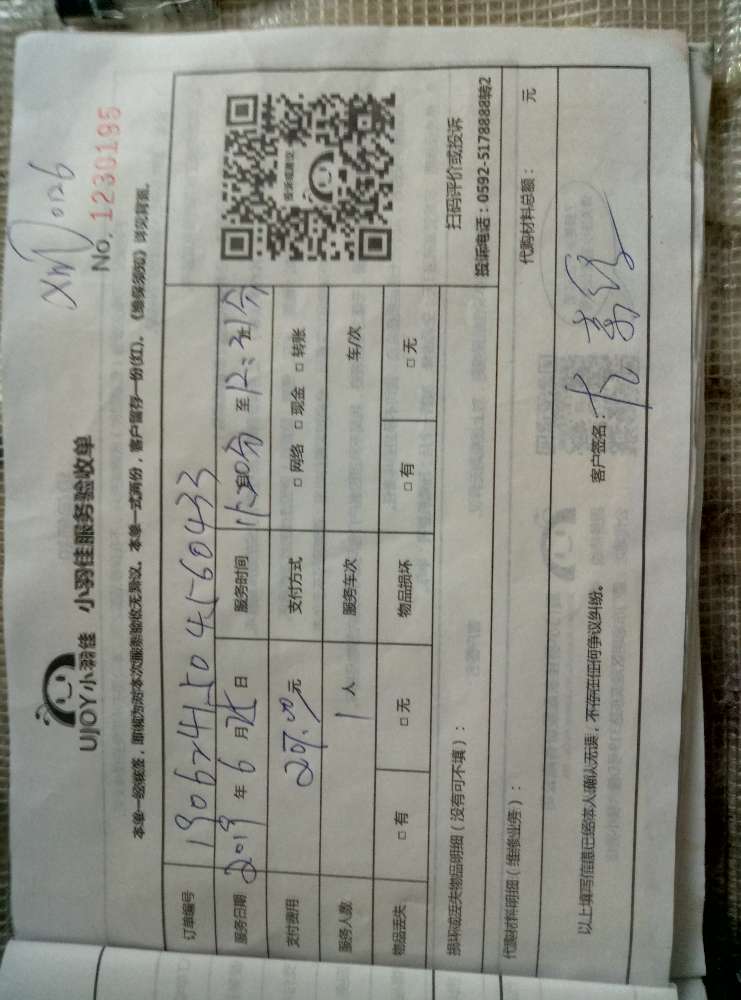 XM 0126
No. 1230195
UJOY小羽佳 小羽佳服务验收单
本单一经核签,即视为对本次服务验收无异议。本单一式两份,客户留存一份(红)。《维保须知》详见背面。
订单编号 190624150 4560433
服务日期 2019 年 6 月 25 日 服务时间 至 12:31分
支付费用 元 支付方式 □ 网络 □ 现金 □ 转账
服务人数 1 人 服务车次 车/次
物品丢失 □ 有 □ 无 物品损坏 □ 有 □ 无
投诉或建议
扫码评价或投诉
投诉电话:0592-5178888转2
损坏或丢失物品明细(没有可不填):
代购材料明细(维修业务): 代购材料总额: 元
以上填写信息已经本人确认无误,不存在任何争议纠纷。 客户签名: